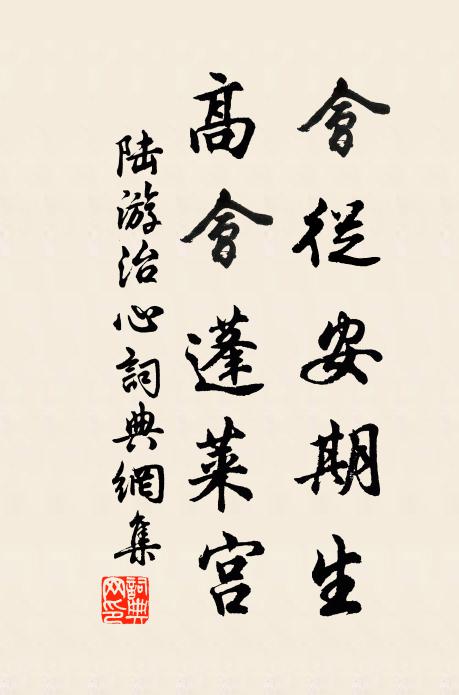 會從安期生
高會蓬萊宮
陸游治心詞典網集
詞典网印